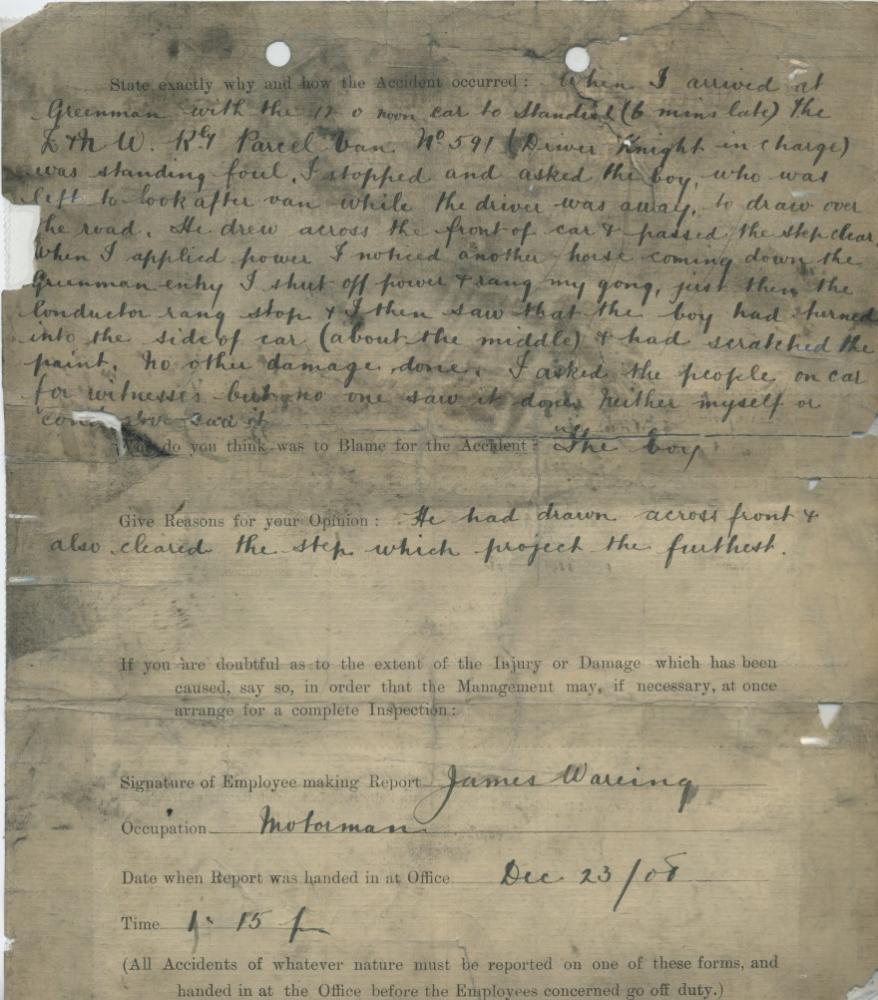 State exactly why and how the Accident occurred: When I arrived at
Greenman with the 12 0 noon car to Standish (6 mins late) The
L & N W. Rly Parcel Van. No 591 (Driver Knight in charge)
was standing foul. I stopped and asked the boy, who was
left to look after van while the driver was away, to draw over
the road. He drew across the front of car & passed the step clear,
when I applied power I noticed another horse coming down the
Greenman entry I shut off power & rang my gong, just then the
Conductor rang stop & I then saw that the boy had turned
into the side of car (about the middle) & had scratched the
paint. No other damage done. I asked the people on car
for witnesses but no one saw it done. Neither myself or
saw it
do you think was to Blame for the Accident: The boy
Give Reasons for your Opinion: He had drawn across front &
also cleared the step which project the furthest.
If you are doubtful as to the extent of the Injury or Damage which has been
caused, say so, in order that the Management may, if necessary, at once
arrange for a complete Inspection:
Signature of Employee making Report James Wareing
Occupation Motorman
Date when Report was handed in at Office Dec 23/08
Time 1. 15 p
(All Accidents of whatever nature must be reported on one of these forms, and
handed in at the Office before the Employees concerned go off duty.)